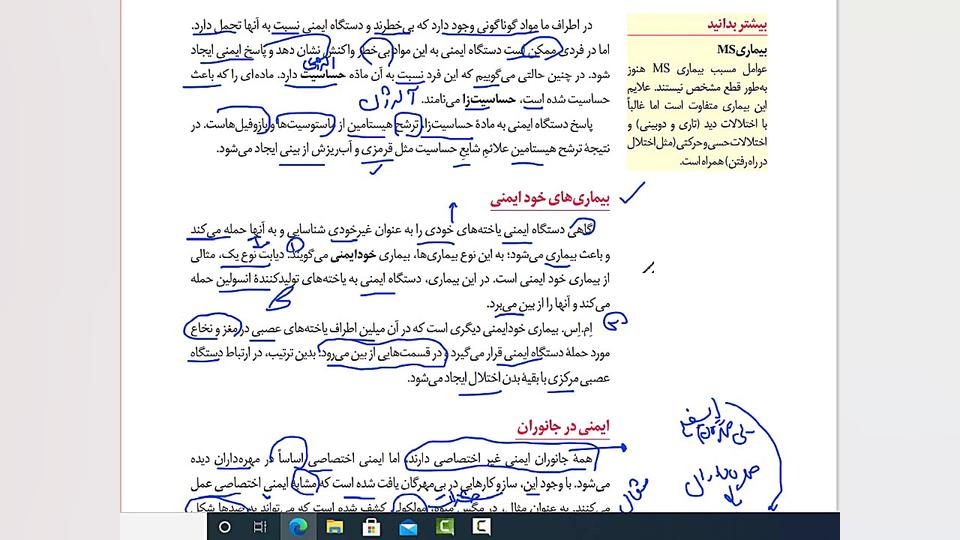 بیشتر بدانید
بیماری MS
عوامل مسبب بیماری MS هنوز
به‌طور قطع مشخص نیستند. علایم
این بیماری متفاوت است اما غالباً
با اختلالات دید (تاری و دوبینی) و
اختلالات حسی و حرکتی (مثل اختلال
در راه رفتن) همراه است.
در اطراف ما مواد گوناگونی وجود دارد که بی‌خطرند و دستگاه ایمنی نسبت به آنها تحمل دارد.
اما در فردی ممکن است دستگاه ایمنی به این مواد بی‌خطر واکنش نشان دهد و پاسخ ایمنی ایجاد
شود. در چنین حالتی می‌گوییم که این فرد نسبت به آن مادّه حساسیت دارد. ماده‌ای را که باعث
آلرژی
حساسیت شده است، حساسیت‌زا می‌نامند.
آلرژن
پاسخ دستگاه ایمنی به مادهٔ حساسیت‌زا، ترشح هیستامین از ماستوسیت‌ها و بازوفیل‌هاست. در
نتیجهٔ ترشح هیستامین علائم شایع حساسیت مثل قرمزی و آب‌ریزش از بینی ایجاد می‌شود.
بیماری‌های خود ایمنی
گاهی دستگاه ایمنی یاخته‌های خودی را به عنوان غیرخودی شناسایی و به آنها حمله می‌کند
و باعث بیماری می‌شود؛ به این نوع بیماری‌ها، بیماری خودایمنی می‌گویند. دیابت نوع یک، مثالی
از بیماری خود ایمنی است. در این بیماری، دستگاه ایمنی به یاخته‌های تولیدکنندهٔ انسولین حمله
می‌کند و آنها را از بین می‌برد.
اِم.اِس. بیماری خودایمنی دیگری است که در آن میلین اطراف یاخته‌های عصبی در مغز و نخاع
مورد حملهٔ دستگاه ایمنی قرار می‌گیرد و در قسمت‌هایی از بین می‌رود؛ بدین ترتیب، در ارتباط دستگاه
عصبی مرکزی با بقیهٔ بدن اختلال ایجاد می‌شود.
ایمنی در جانوران
همهٔ جانوران ایمنی غیر اختصاصی دارند، اما ایمنی اختصاصی اساساً در مهره‌داران دیده
می‌شود. با وجود این، سازوکارهایی در بی‌مهرگان یافت شده است که مشابه ایمنی اختصاصی عمل
می‌کنند. به عنوان مثال، در مگس میوه، مولکولی کشف شده است که می‌تواند به صدها شکل